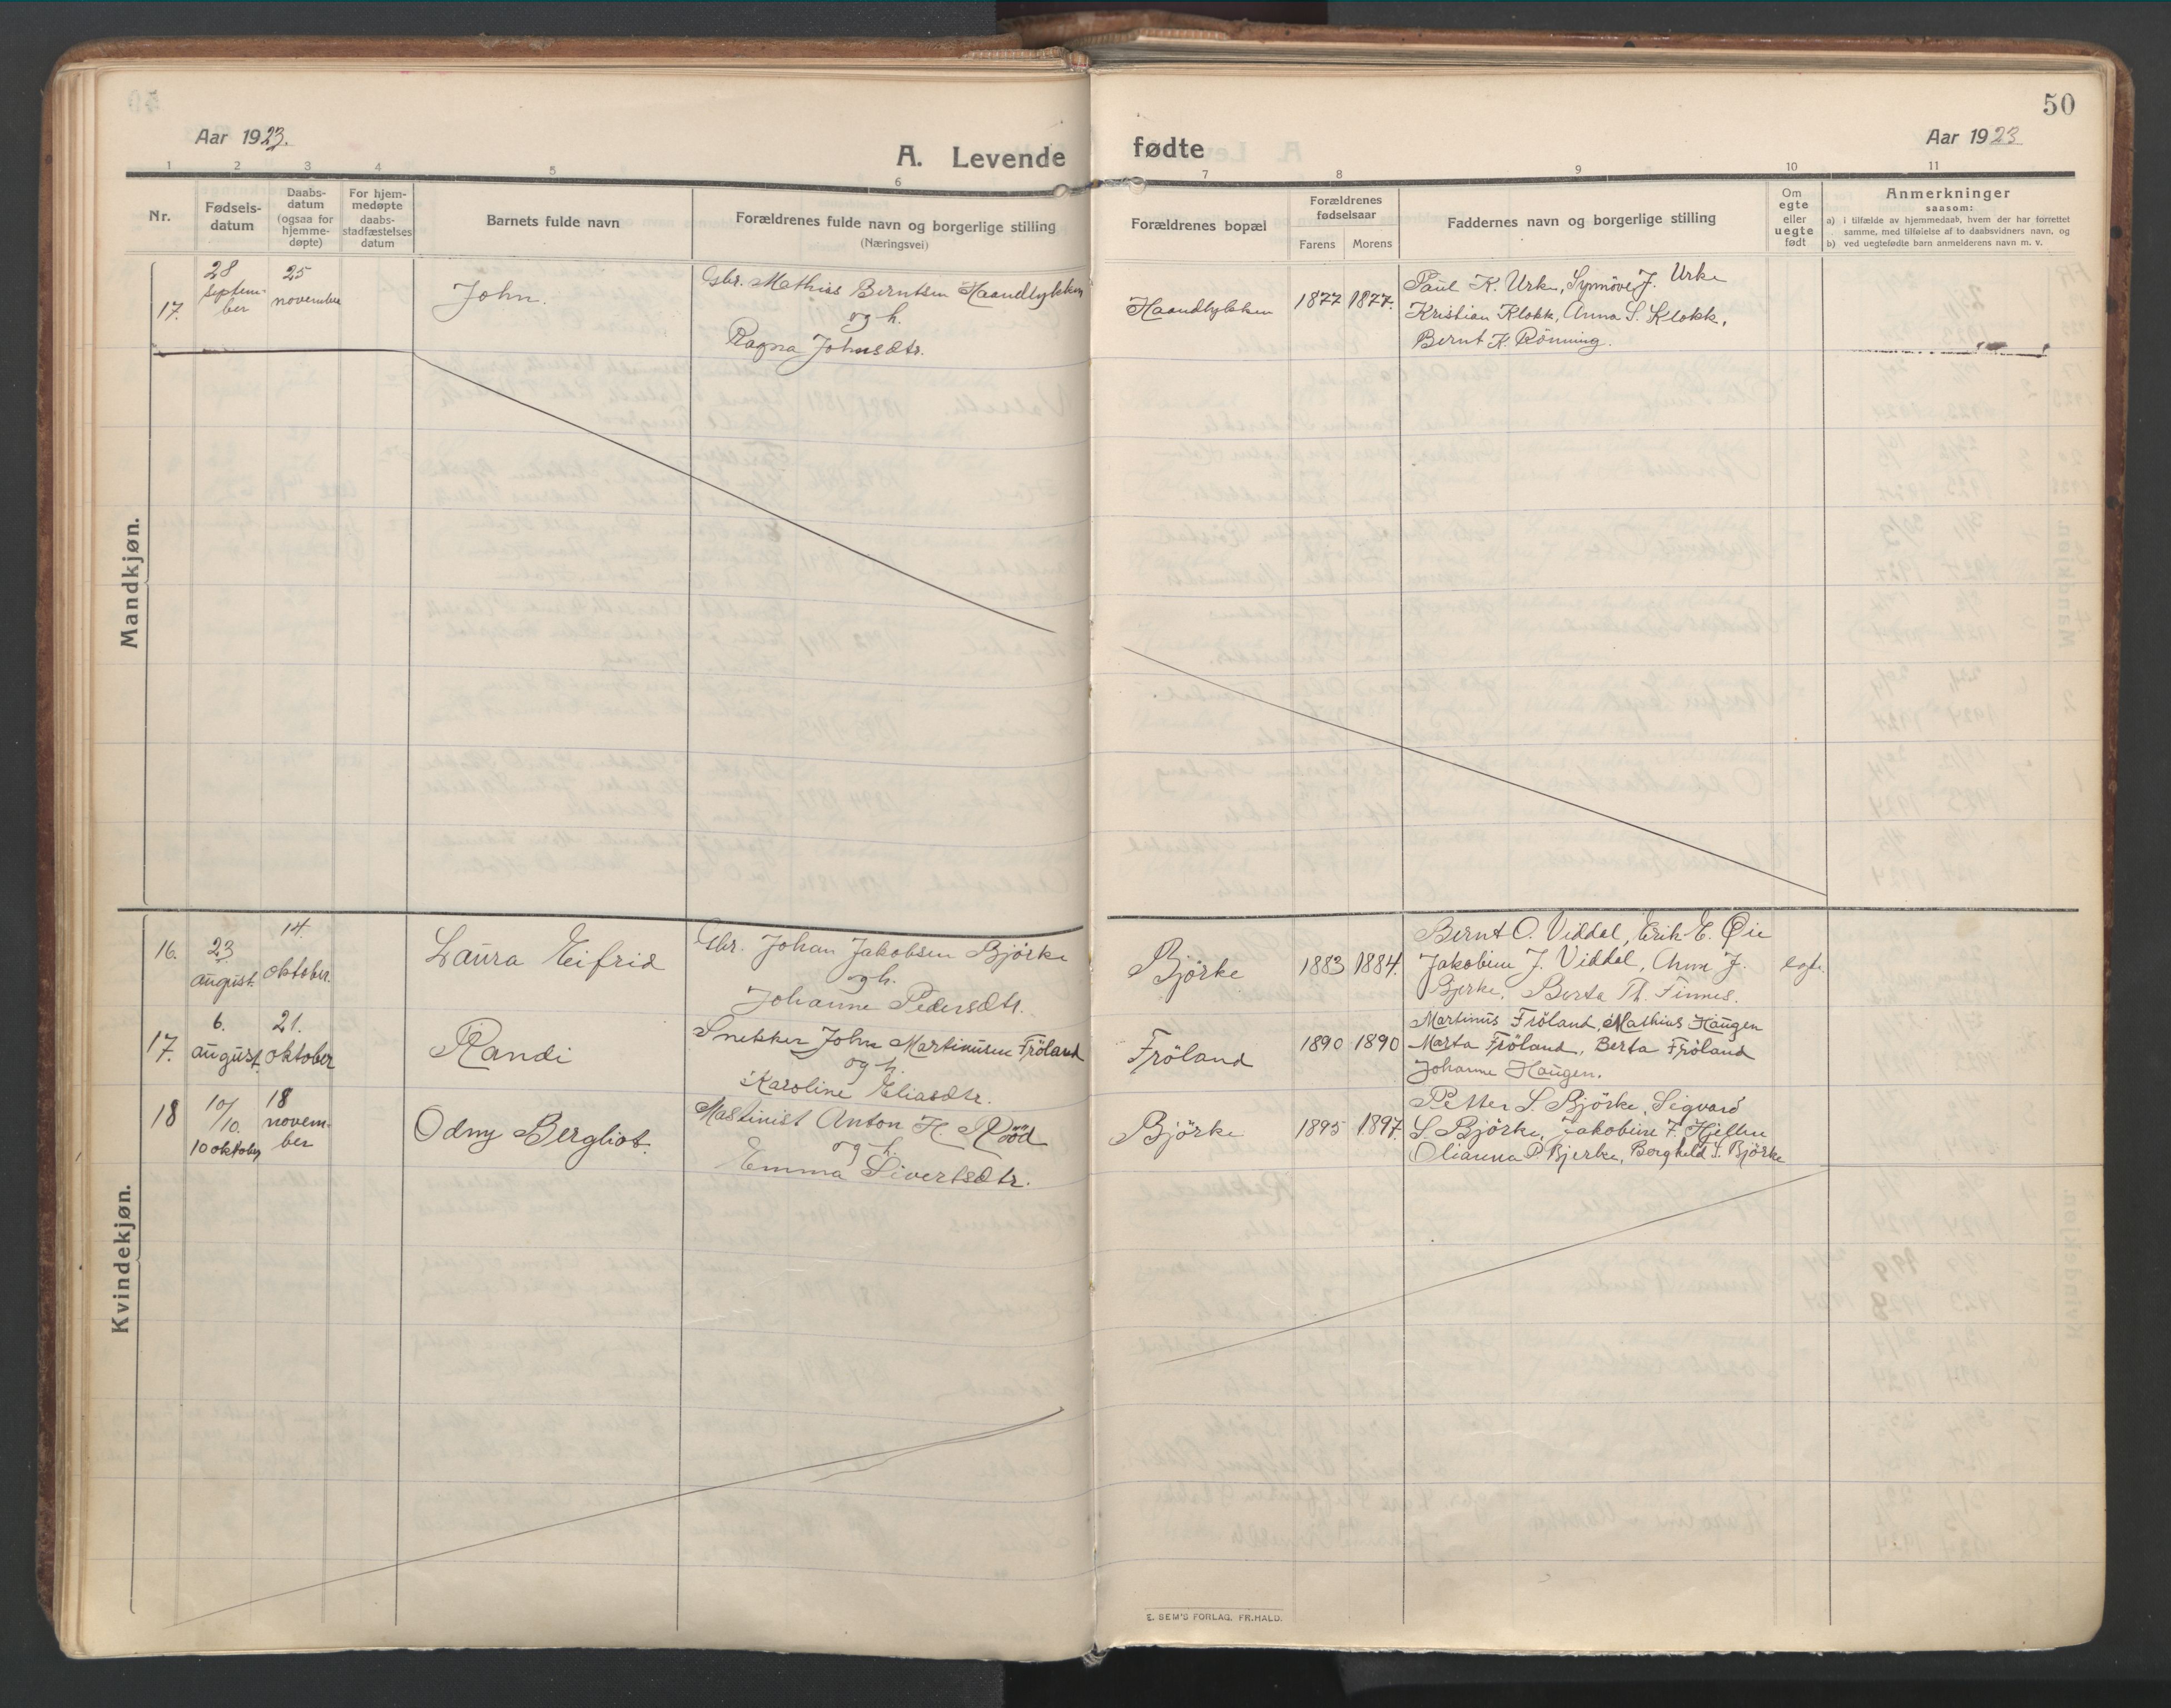 50
Aar 1923.
Aar 1923
A. Levende fødte
1 2 3 4 5 6 7 8 9 10 11
Nr.
Fødsels-
datum
Daabs-
datum
(ogsaa for
hjemme-
døpte)
For hjem-
medøpte
daabs-
stadfæstelses
datum
Barnets fulde navn
Forældrenes fulde navn og borgerlige stilling
(Næringsvei)
Forældrenes bopæl
Forældrenes
fødselsaar
Farens Morens
Faddernes navn og borgerlige stilling
Om
egte
eller
uegte
født
Anmerkninger
saasom:
a) i tilfælde av hjemmedaab, hvem der har forrettet
samme, med tilføielse af to daabsvidners navn, og
b) ved uegtefødte barn anmelderens navn m. v.
Mandkjøn.
17.
28
septem-
ber
25
november
John.
Gbr. Mathias Berntsen Haandlykken
og h.
Ragna Johnsdtr.
Haandlykken
1877 1877.
Paul K. Urke, Synnöve J. Urke
Kristian Klokk, Anna S. Klokk,
Bernt K. Rönning.
Kvindekjøn.
16.
23
august.
14.
oktober.
Laura Eifrid
Gbr. Johan Jakobsen Björke
og h.
Johanne Pedersdtr.
Björke
1883 1884.
Bernt O. Viddal, Erik E. Øie
Jakobine J. Viddal, Anne J.
Bjerke, Berta Th. Finnes.
17.
6.
august.
21.
oktober
Randi
Snekker John Martinusen Fröland
og h.
Karoline Eliasdtr.
Fröland
1890 1890
Martinus Fröland, Mathias Haugen
Marta Fröland, Berta Fröland
Johanne Haugen.
18
10/10.
10 oktober
18
novem-
ber
Odny Bergliot.
Mastinist Anton H. Röd
og h.
Emma Sivertsdtr.
Björke
1895 1897.
Petter S. Björke, Sigvard
S. Björke, Jakobine F. Hjellen
Olianna P. Bjerke, Berghild S. Björke
E. SEM'S FORLAG, FR.HALD.